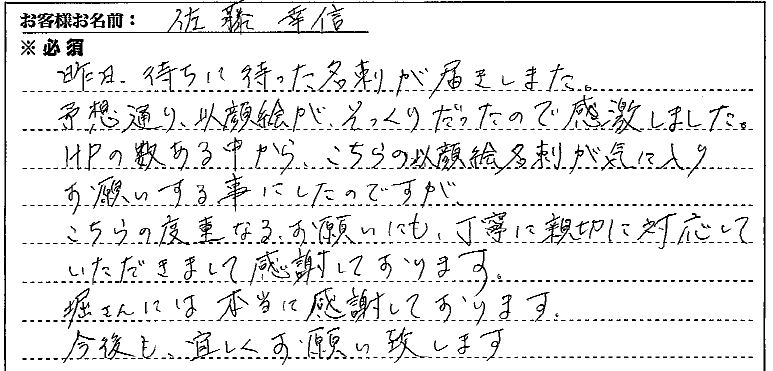 お客様お名前： 佐藤幸信
※必須
昨日、待ちに待った名刺が届きしました。
予想通り、以顔絵が、そっくりだったので感激しました。
HPの数ある中から、こちらの以顔絵名刺が気に入り
お願いする事にしたのですが、
こちらの度重なるお願いにも、丁寧に親切に対応して
いただきまして感謝しております。
堀さんには本当に感謝しております。
今後も、宜しくお願い致します